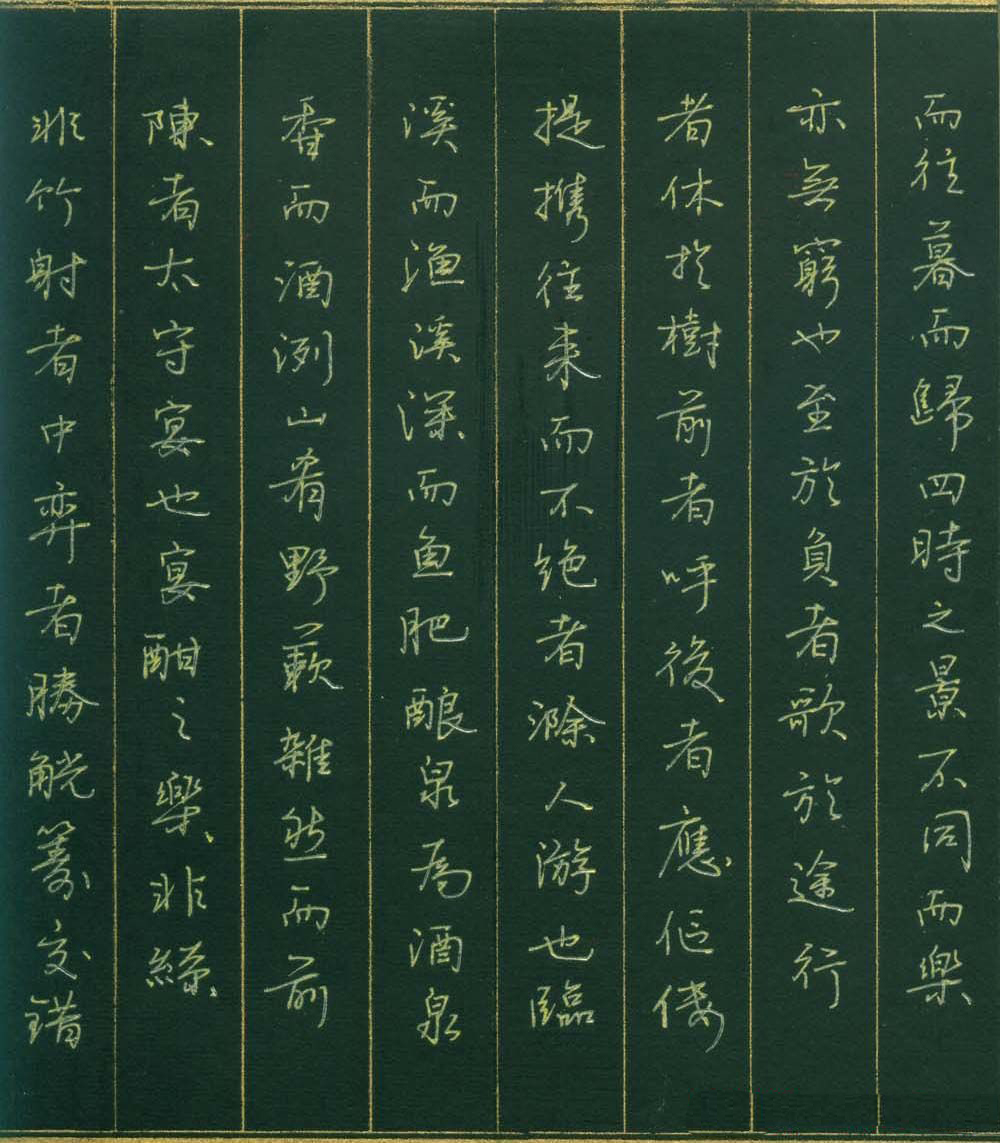 而往暮而歸四時之景不同而樂
亦無窮也至於負者歌於途行
者休於樹前者呼後者應傴僂
提攜往來而不絶者滁人游也臨
溪而漁溪深而魚肥釀泉為酒泉
香而酒洌山肴野蔌雜然而前
陳者太守宴也宴酣之樂非絲
非竹射者中弈者勝觥籌交錯